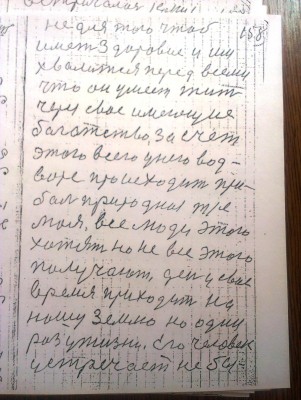 158
не для того чтоб
имет здоровие и им
хвалится перед всеми
что он умеет жит
чем свое имеющие
богатство, За счет
этого всего у него вод-
воре происходит при-
бал природная
моля, все люди этого
хотят но не все этого
получают, ден у свое
время приходит на
нашу Землю но один
раз у жизни. Его человек
устречает не бу